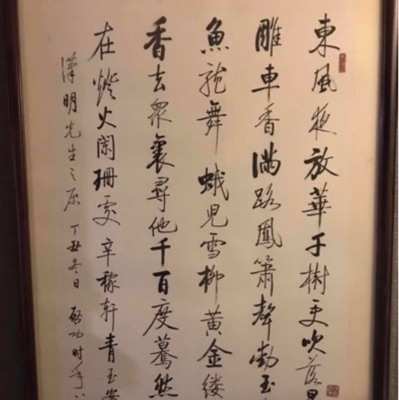 東風夜放華千樹更吹落
雕車香滿路鳳簫聲動玉
魚龍舞蛾兒雪柳黃金縷
香去衆裏尋他千百度驀然
在燈火闌珊處辛稼軒青玉案
漢明先生之属丁丑冬日啓功时年